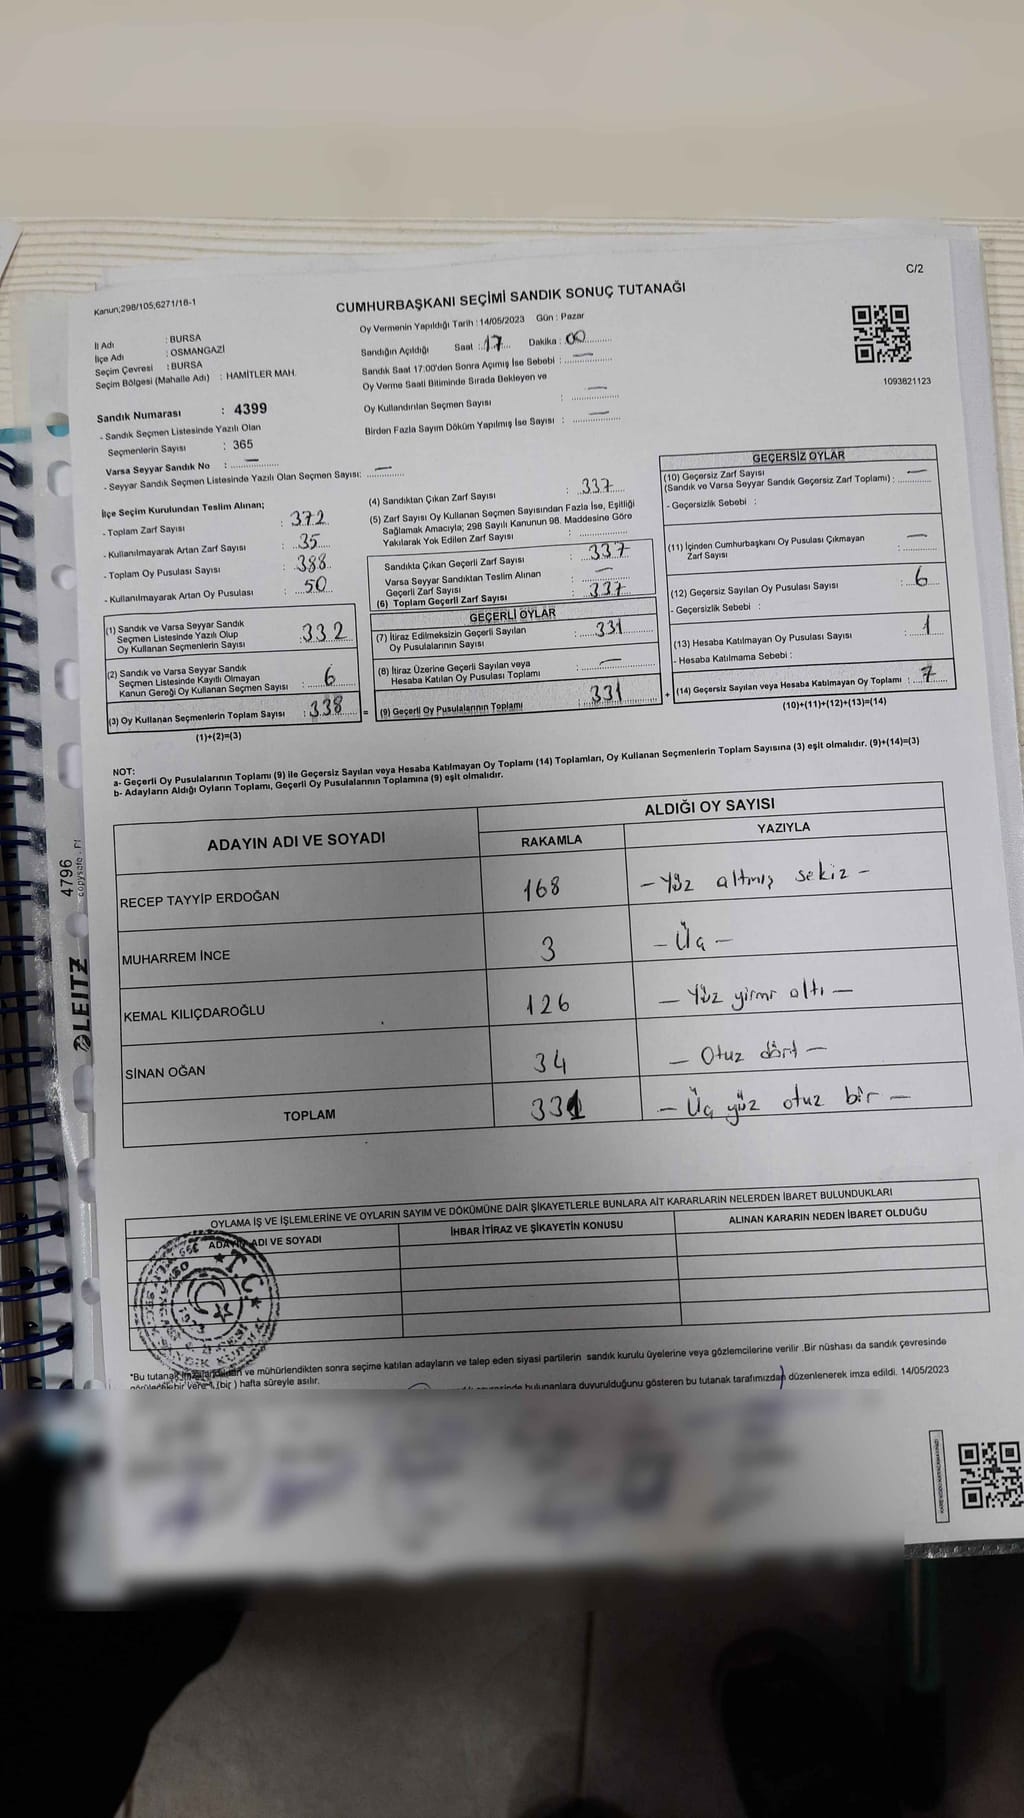 C/2
Kanun;298/105;6271/18-1
CUMHURBAŞKANI SEÇİMİ SANDIK SONUÇ TUTANAĞI
İl Adı : BURSA
İlçe Adı : OSMANGAZİ
Seçim Çevresi : BURSA
Seçim Bölgesi (Mahalle Adı) : HAMİTLER MAH.
Sandık Numarası : 4399
- Sandık Seçmen Listesinde Yazılı Olan
Seçmenlerin Sayısı : 365
Varsa Seyyar Sandık No : —
- Seyyar Sandık Seçmen Listesinde Yazılı Olan Seçmen Sayısı: —
Oy Vermenin Yapıldığı Tarih : 14/05/2023 Gün : Pazar
Sandığın Açıldığı Saat : 17 Dakika : 00
Sandık Saat 17:00'den Sonra Açımış İse Sebebi : —
Oy Verme Saati Bitiminde Sırada Bekleyen ve
Oy Kullandırılan Seçmen Sayısı : —
Birden Fazla Sayım Döküm Yapılmış İse Sayısı : —
1093821123
İlçe Seçim Kurulundan Teslim Alınan;
- Toplam Zarf Sayısı : 372
- Kullanılmayarak Artan Zarf Sayısı : 35
- Toplam Oy Pusulası Sayısı : 388
- Kullanılmayarak Artan Oy Pusulası : 50
(1) Sandık ve Varsa Seyyar Sandık
Seçmen Listesinde Yazılı Olup
Oy Kullanan Seçmenlerin Sayısı : 332
(2) Sandık ve Varsa Seyyar Sandık
Seçmen Listesinde Kayıtlı Olmayan
Kanun Gereği Oy Kullanan Seçmen Sayısı : 6
(3) Oy Kullanan Seçmenlerin Toplam Sayısı : 338
(1)+(2)=(3)
=
(4) Sandıktan Çıkan Zarf Sayısı : 337
(5) Zarf Sayısı Oy Kullanan Seçmen Sayısından Fazla İse, Eşitliği
Sağlamak Amacıyla; 298 Sayılı Kanunun 98. Maddesine Göre
Yakılarak Yok Edilen Zarf Sayısı :
Sandıkta Çıkan Geçerli Zarf Sayısı : 337
Varsa Seyyar Sandıktan Teslim Alınan
Geçerli Zarf Sayısı : —
(6) Toplam Geçerli Zarf Sayısı : 337
GEÇERLİ OYLAR
(7) İtiraz Edilmeksizin Geçerli Sayılan
Oy Pusulalarının Sayısı : 331
(8) İtiraz Üzerine Geçerli Sayılan veya
Hesaba Katılan Oy Pusulası Toplamı : —
(9) Geçerli Oy Pusulalarının Toplamı : 331
+
GEÇERSİZ OYLAR
(10) Geçersiz Zarf Sayısı
(Sandık ve Varsa Seyyar Sandık Geçersiz Zarf Toplamı) : —
- Geçersizlik Sebebi :
(11) İçinden Cumhurbaşkanı Oy Pusulası Çıkmayan
Zarf Sayısı : —
(12) Geçersiz Sayılan Oy Pusulası Sayısı : 6
- Geçersizlik Sebebi :
(13) Hesaba Katılmayan Oy Pusulası Sayısı : 1
- Hesaba Katılmama Sebebi :
(14) Geçersiz Sayılan veya Hesaba Katılmayan Oy Toplamı : 7
(10)+(11)+(12)+(13)=(14)
NOT:
a- Geçerli Oy Pusulalarının Toplamı (9) ile Geçersiz Sayılan veya Hesaba Katılmayan Oy Toplamı (14) Toplamları, Oy Kullanan Seçmenlerin Toplam Sayısına (3) eşit olmalıdır. (9)+(14)=(3)
b- Adayların Aldığı Oyların Toplamı, Geçerli Oy Pusulalarının Toplamına (9) eşit olmalıdır.
ADAYIN ADI VE SOYADI
ALDIĞI OY SAYISI
RAKAMLA YAZIYLA
RECEP TAYYİP ERDOĞAN 168 - Yüz altmış sekiz -
MUHARREM İNCE 3 - Üç -
KEMAL KILIÇDAROĞLU 126 - Yüz yirmi altı -
SİNAN OĞAN 34 - Otuz dört -
TOPLAM 331 - Üç yüz otuz bir -
OYLAMA İŞ VE İŞLEMLERİNE VE OYLARIN SAYIM VE DÖKÜMÜNE DAİR ŞİKAYETLERLE BUNLARA AİT KARARLARIN NELERDEN İBARET BULUNDUKLARI
ADAYIN ADI VE SOYADI İHBAR İTİRAZ VE ŞİKAYETİN KONUSU ALINAN KARARIN NEDEN İBARET OLDUĞU
T.C.
*Bu tutanak imzalandıktan ve mühürlendikten sonra seçime katılan adayların ve talep eden siyasi partilerin sandık kurulu üyelerine veya gözlemcilerine verilir .Bir nüshası da sandık çevresinde
görülebilir bir yere 1 (bir ) hafta süreyle asılır.
bulunanlara duyurulduğunu gösteren bu tutanak tarafımızdan düzenlenerek imza edildi. 14/05/2023
4796
copysafe
LEITZ